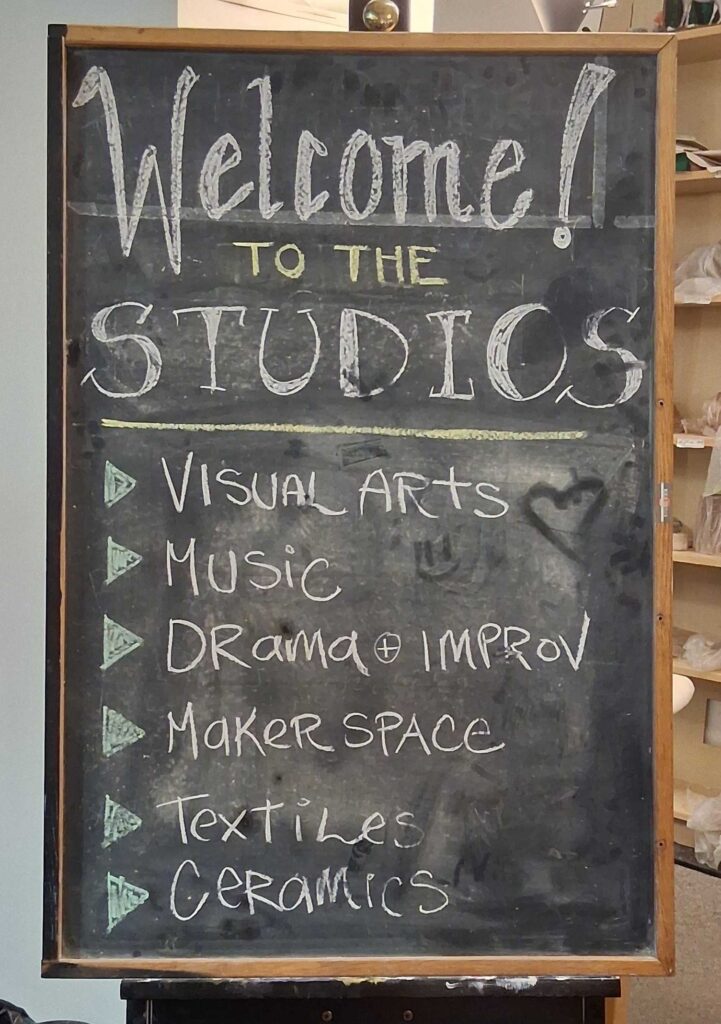 Welcome!
TO THE
STUDIOS
VISUAL ARTS
MUSIC
DRAMA + IMPROV
MAKER SPACE
TEXTILES
CERAMICS